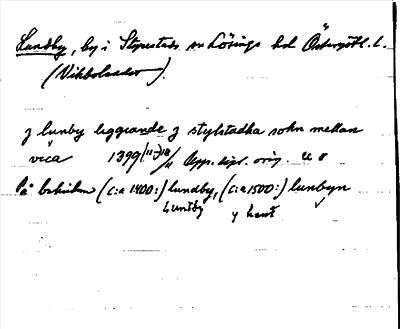 Lundby, by i Styrestads sn Lösings hd Östergötl. l.
(Vikbolandet).
j lunby liggiande j stylstadha sokn mellan
vica 1399 (11/11) Upps. dipl. orig. U 8
På baksidan (c:a 1400:) lundby, (c:a 1500:) lunbyn
Luntby